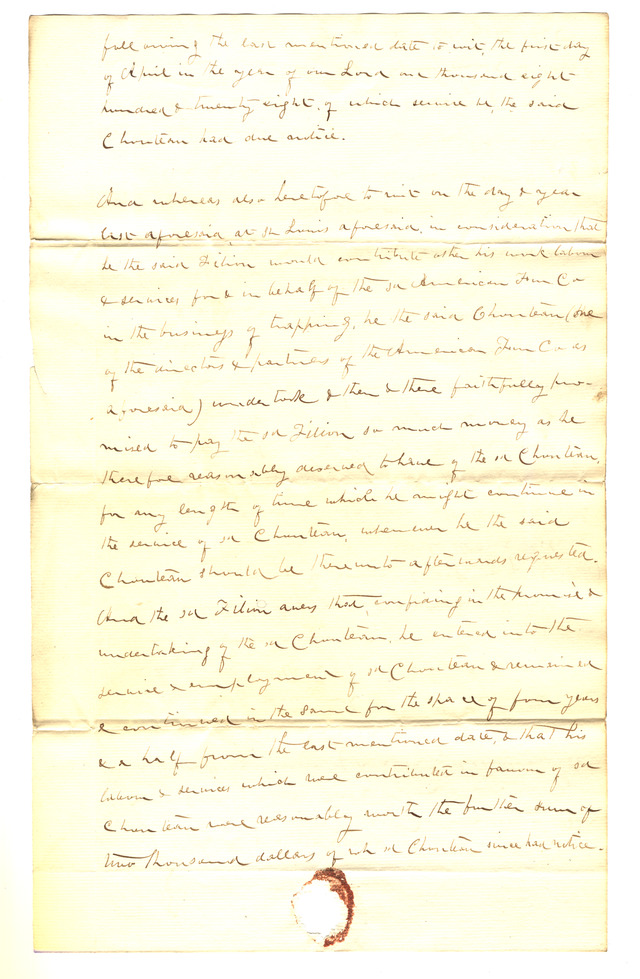 following the last mentioned date to wit, the first day
of April in the year of our Lord one thousand eight
hundred & twenty eight, of which service he, the said
Chouteau had due notice.
And whereas also heretofore to wit on the day & year
last aforesaid, at sd Louis aforesaid, in consideration that
he the said Filion would contribute other his work labour
& services for & in behalf of the sd American Fur Co
in the business of trapping, he the said Chouteau (one
of the directors & partners of the American Fur Co as
aforesaid) undertook & then & there faithfully pro-
mised to pay the sd Filion so much money as he
therefore reasonably deserved to have of the sd Chouteau,
for any length of time which he might continue in
the service of sd Chouteau, whenever he the said
Chouteau should be thereunto afterwards requested.
And the sd Filion avers that, confiding in the promise &
undertaking of the sd Chouteau, he entered into the
service & employment of sd Chouteau & remained
& continued in the same for the space of four years
& a half from the last mentioned date, & that his
labour & services which were contributed in favour of sd
Chouteau were reasonably worth the further sum of
two thousand dollars of wh sd Chouteau since had notice.